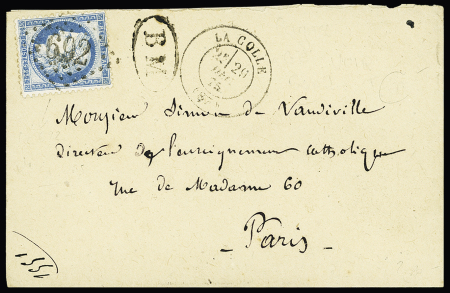 692
BM
LA COLLE
26
Monsieur Simon de Vandiville
directeur de l'enseignement catholique
rue de Madame 60
Paris
1551